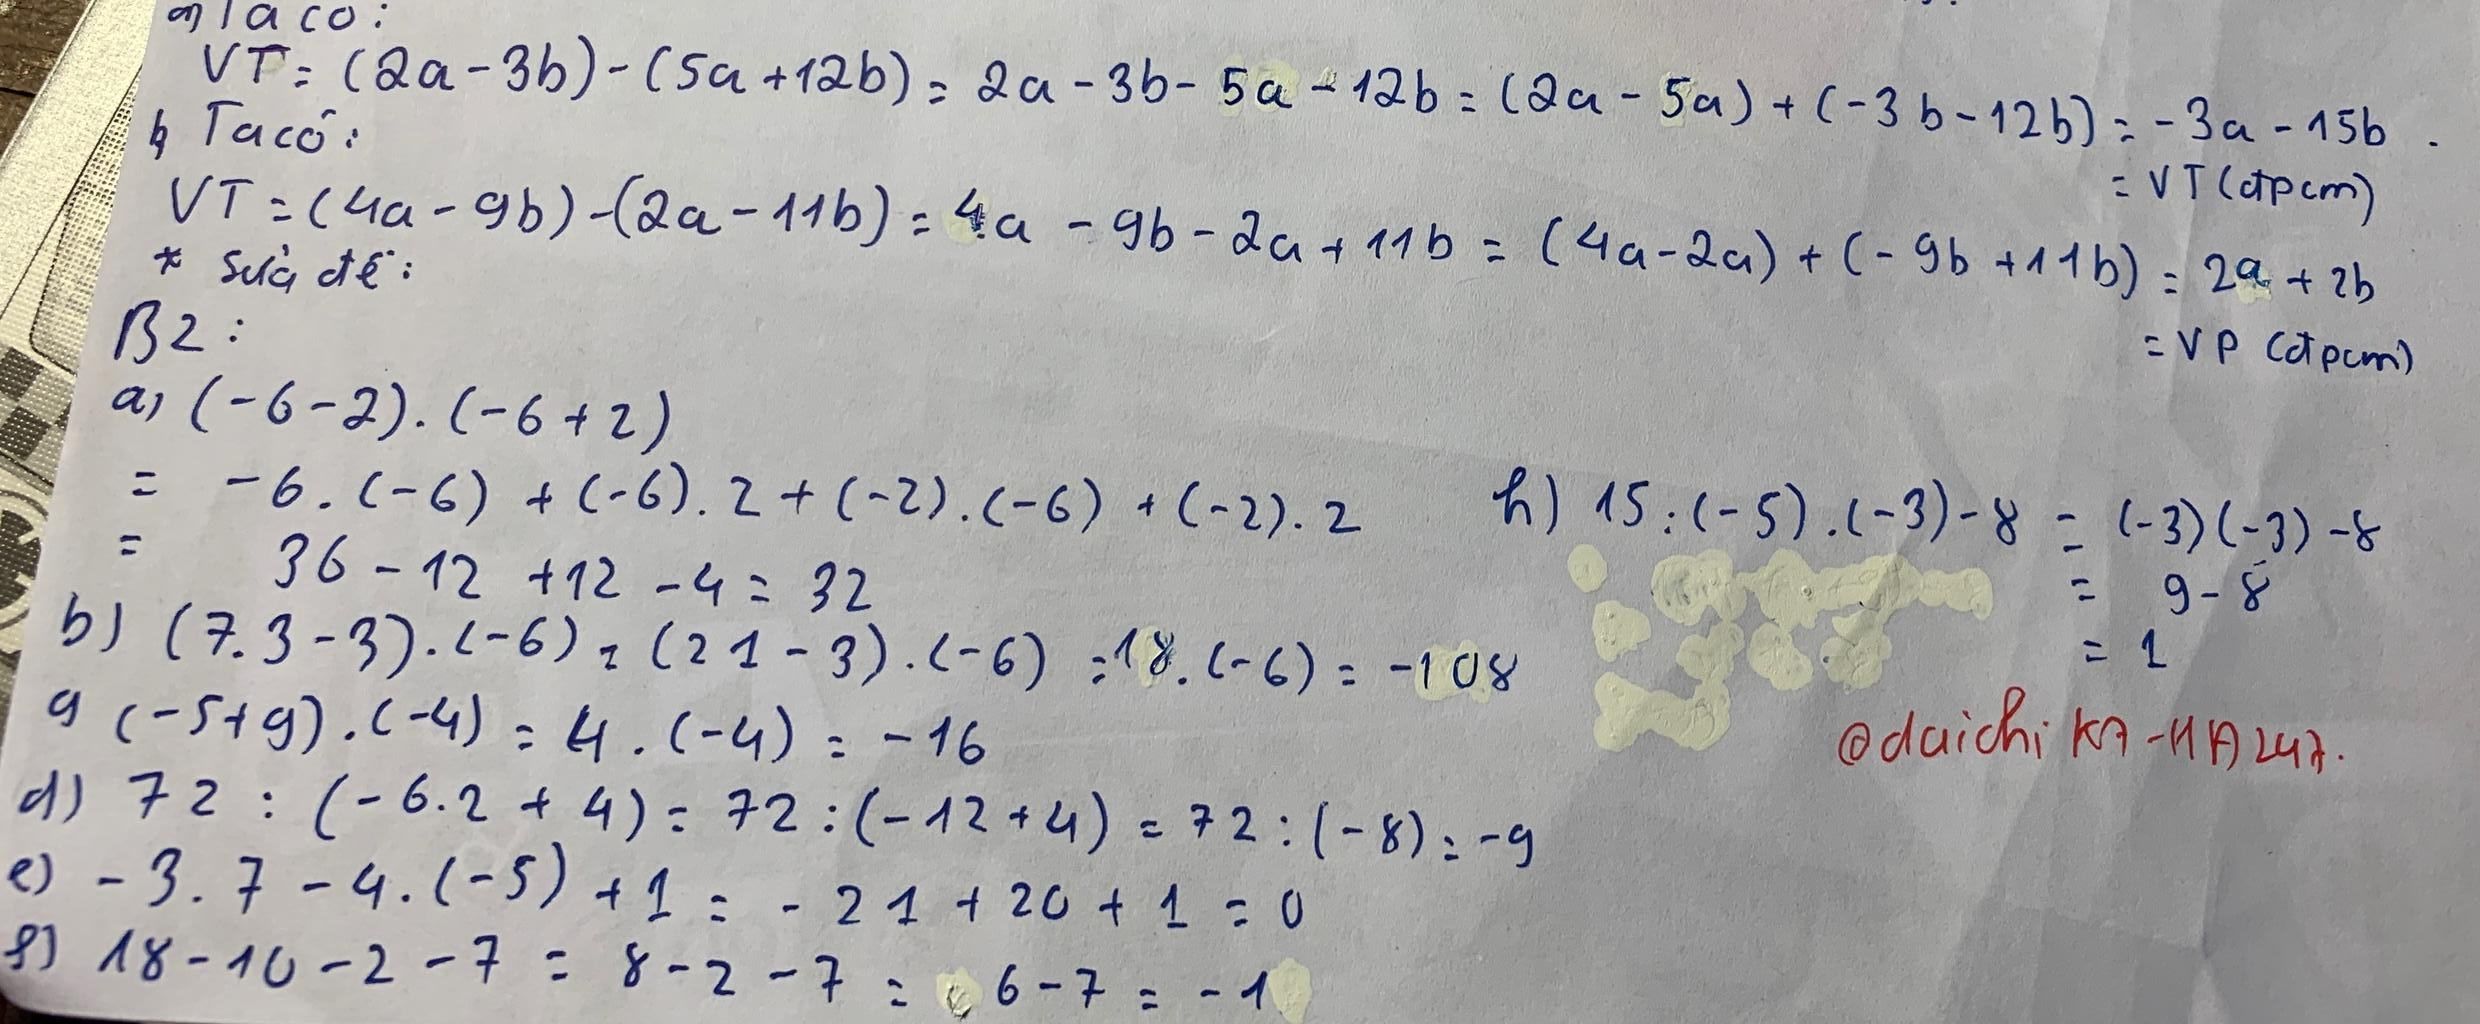 a) Ta có:
VT = (2a - 3b) - (5a + 12b) = 2a - 3b - 5a - 12b = (2a - 5a) + (-3b - 12b) = -3a - 15b.
= VT (đpcm)
b, Ta có:
VT = (4a - 9b) - (2a - 11b) = 4a - 9b - 2a + 11b = (4a - 2a) + (-9b + 11b) = 2a + 2b
= VP (đpcm)
* Sửa đề:
B2:
a, (-6 - 2). (-6 + 2)
= -6. (-6) + (-6). 2 + (-2). (-6) + (-2). 2
= 36 - 12 + 12 - 4 = 32
b) (7.3 - 3). (-6) = (21 - 3). (-6) = 18. (-6) = -108
c, (-5+9). (-4) = 4. (-4) = -16
d) 72 : (-6.2 + 4) = 72 : (-12 + 4) = 72 : (-8) = -9
e) -3. 7 - 4. (-5) + 1 = -21 + 20 + 1 = 0
f) 18 - 10 - 2 - 7 = 8 - 2 - 7 = 6 - 7 = -1
h) 15 : (-5) . (-3) - 8 = (-3)(-3) - 8
= 9 - 8
= 1
@daichi K7 - HA247.